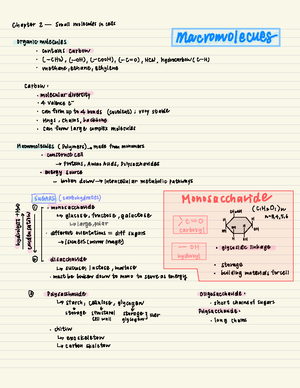 Chapter 2 — Small molecules in cells
Macromolecues
Organic molecules
· contains carbon
· (-CH₃), (-OH), (-COOH), (-C=O), HCN, hydrocarbon (C-H)
· methane, ethane, ethylene
Carbon ·
· molecular diversity
· 4 valence e⁻
· can form up to 4 bonds (covalent) ; very stable
· rings, chains,
· can form large complex molecules
Macromolecules (Polymers) → made from monomers
· construct cell
→ Proteins, Amino Acids, Polysaccharides
· energy source
→ broken down → intercellular metabolic pathways
SUGARS (carbohydrates)
hydrolysis +H₂O
condensation
① monosaccharide
↳ glucose, fructose, galactose
· different orientations = diff sugars
→ isomers (mirror image)
② disaccharide
↳ sucrose, lactose, maltose
· must be broken down to mono to serve as energy
③ Polysaccharide
↳ starch, cellulose, glycogen
storage
structural cell wall
storage glycogen
liver
· chitin
↳ exoskeleton
↳ carbon skeleton
Monosaccharide
(CH₂O)n
n=3,4,5,6
C=O
carbonyl
— OH
hydroxyl
· glycosidic linkage
· storage
· building materials for cell
Oligosaccharide ·
· short chain of sugars
Polysaccharide ·
· long chains